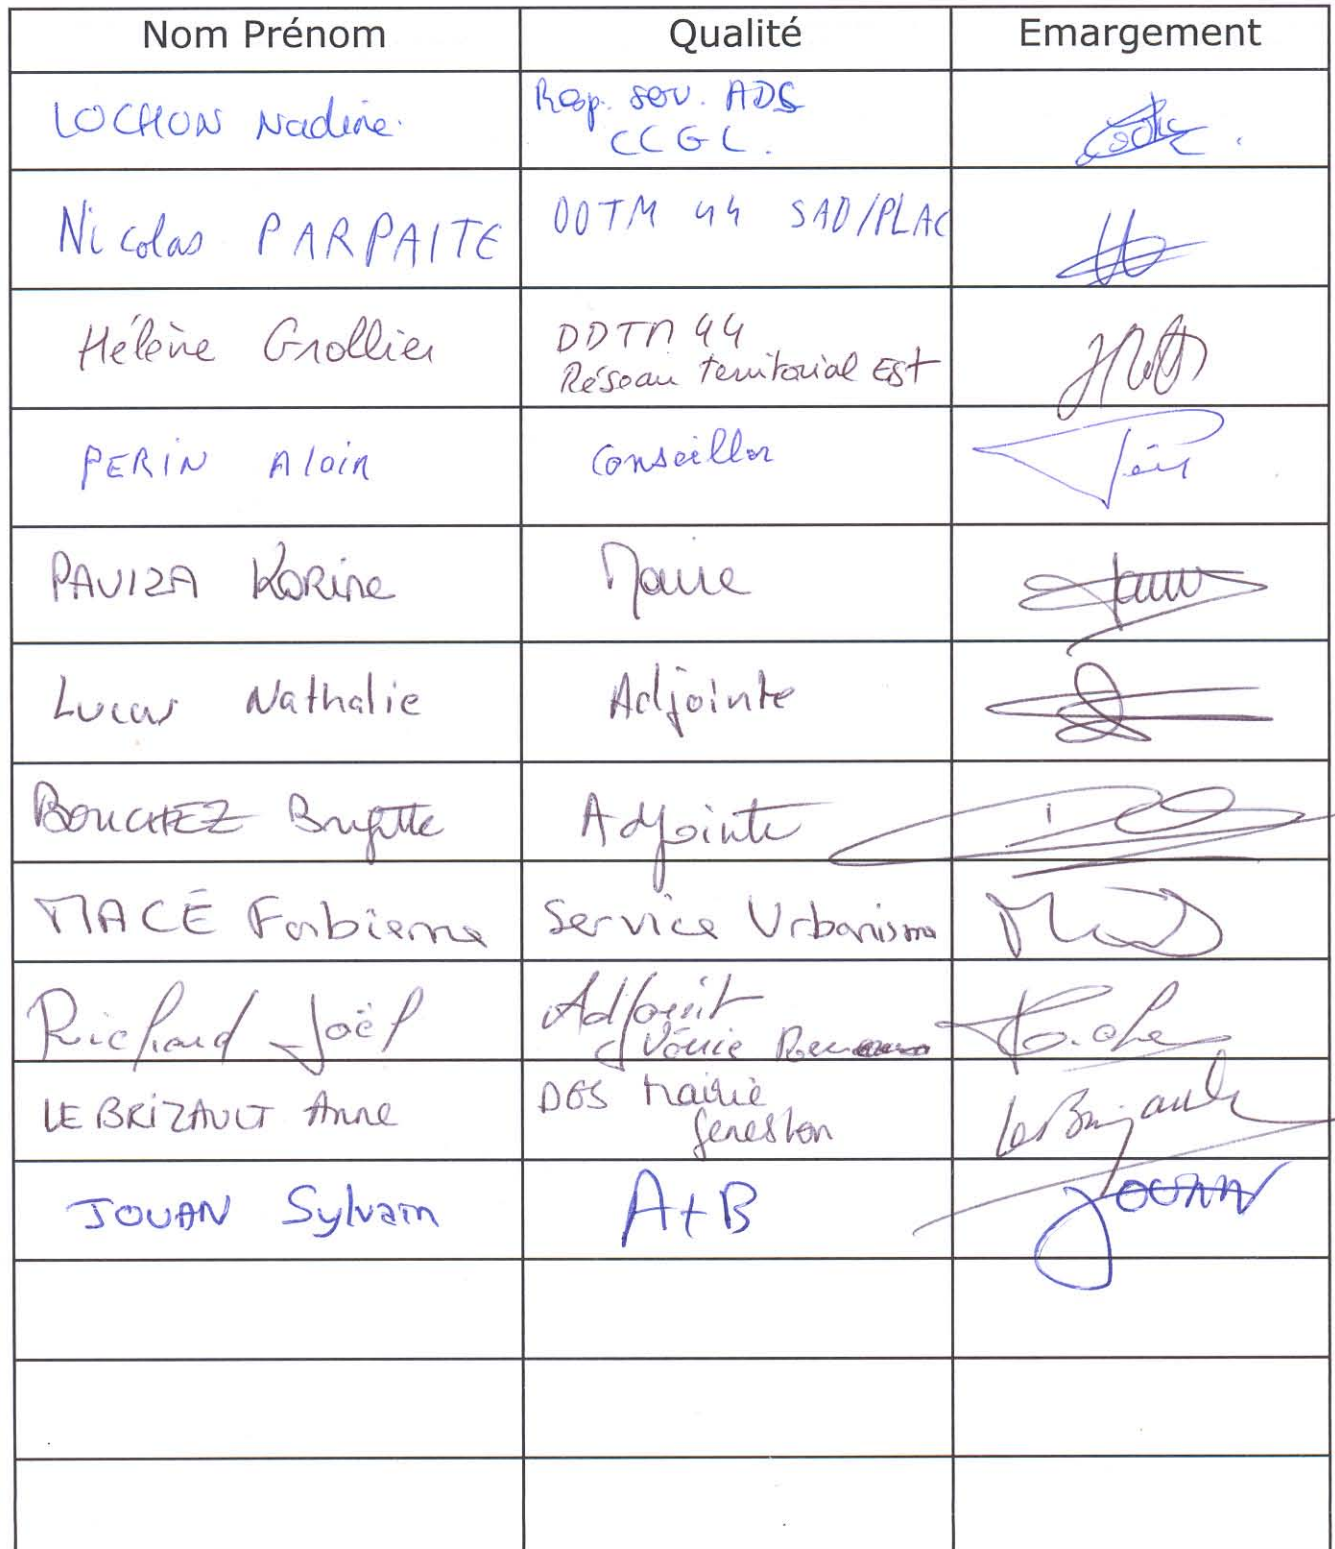 Nom Prénom Qualité Emargement
LOCHON Nadine. Resp. serv. ADS
CCGL.
Nicolas PARPAITE DDTM 44 SAD/PLAC
Hélène Grollier DDTM 44
Réseau territorial Est
PERIN Alain Conseiller
PAVIZA Karine Maire
Lucas Nathalie Adjointe
BOUCHEZ Brigitte Adjointe
MACÉ Fabienne Service Urbanisme
Richard Joël Adjoint
LE BRIZAULT Anne DGS Mairie
Geneston
Le Brizault
JOUAN Sylvain A+B JOUAN